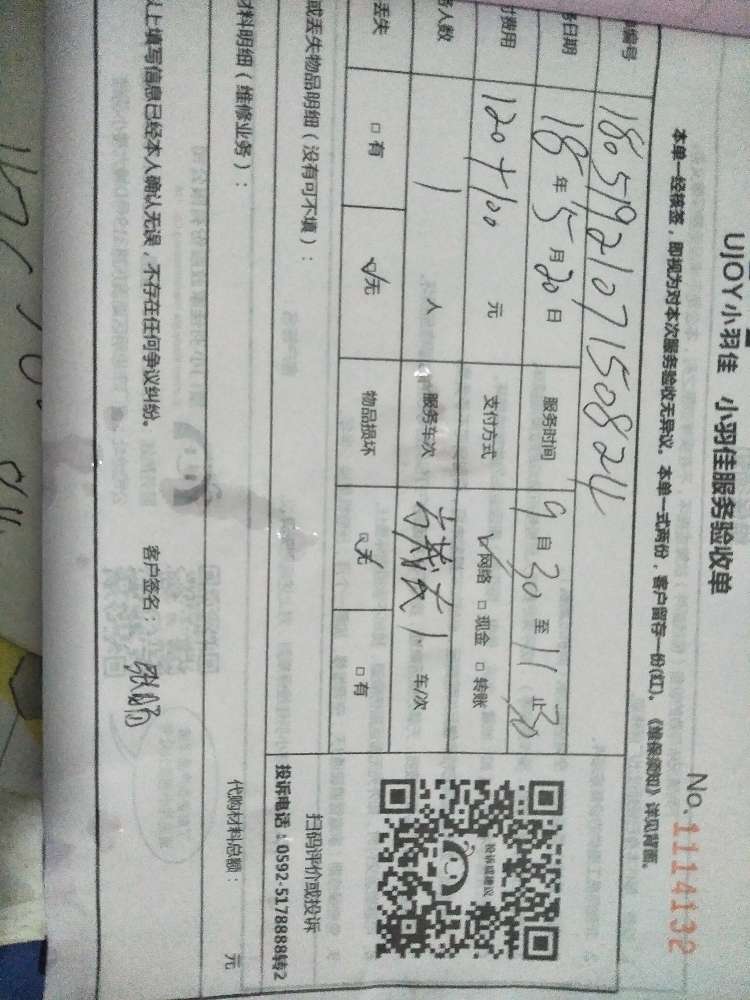 UJOY小羽佳 小羽佳服务验收单
No. 1114132
本单一经核签，即视为对本次服务验收无异议。本单一式两份，客户留存一份(红)。《维保须知》详见背面。
编号 180519210715082
日期 18年5月20日 服务时间 9自30至11止30
费用 120+100 元 支付方式 ☑网络 □现金 □转账
人数 1 人 服务车次 1 车/次
丢失 □有 ☑无 物品损坏 ☑无 □有
或丢失物品明细（没有可不填）：
投诉或建议
扫码评价或投诉
投诉电话：0592-5178888转2
材料明细（维修业务）：
代购材料总额： 元
以上填写信息已经本人确认无误，不存在任何争议纠纷。
客户签名：